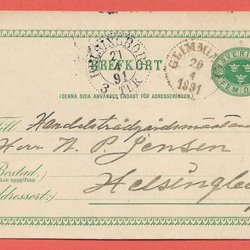 BREFKORT.
(DENNA SIDA ANVÄNDES ENDAST FÖR ADRESSERINGEN.)
HELSINGBORG
21
91
3 TUR
GLIMMI
20
4
1891
SVERIGE
FEM
Till Handelsträdgårdsmästaren
Herr N. P. Jensen
Bostad:
Helsingb
Adressort: